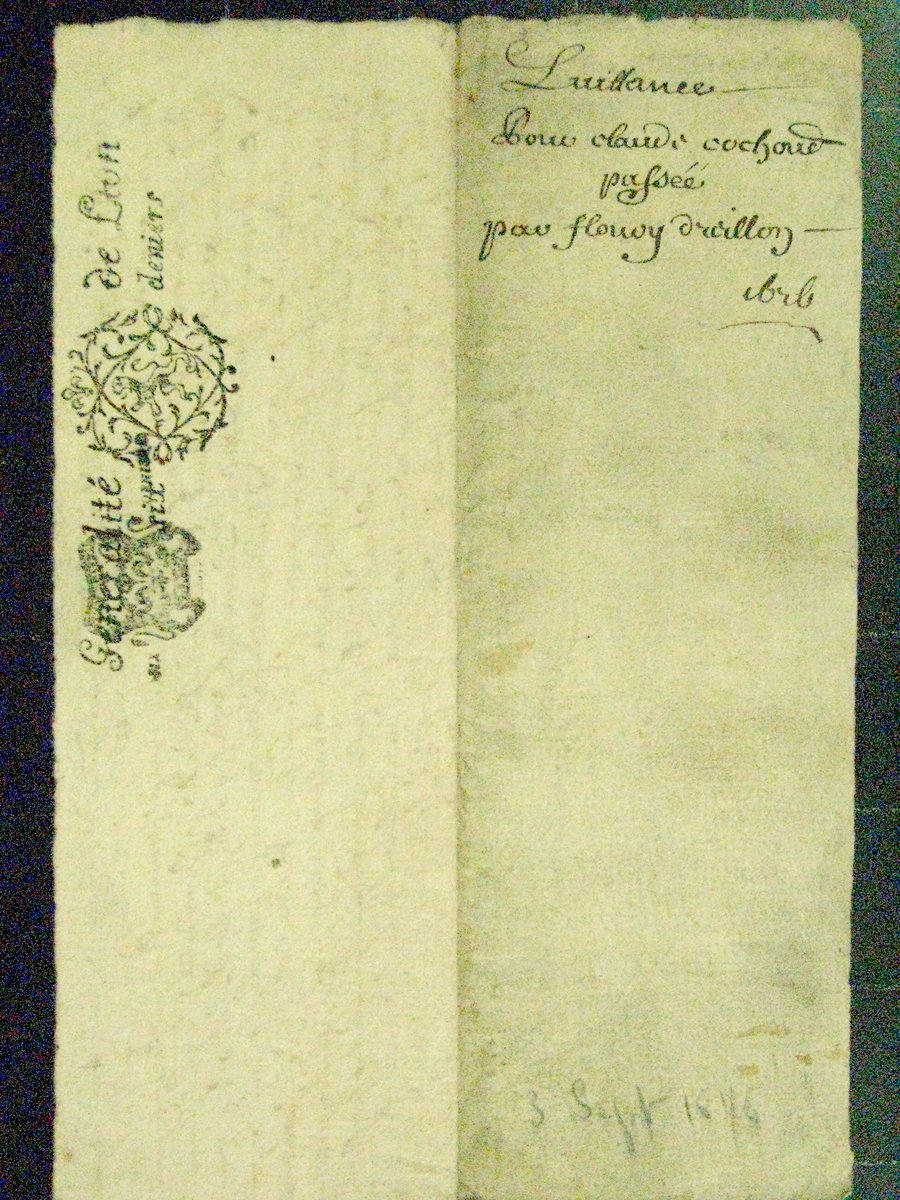 Generalité de Lion
six deniers
Quittance
Pour claude cochond
passéé
par fleury drevillon
1676
3 Sept 1676